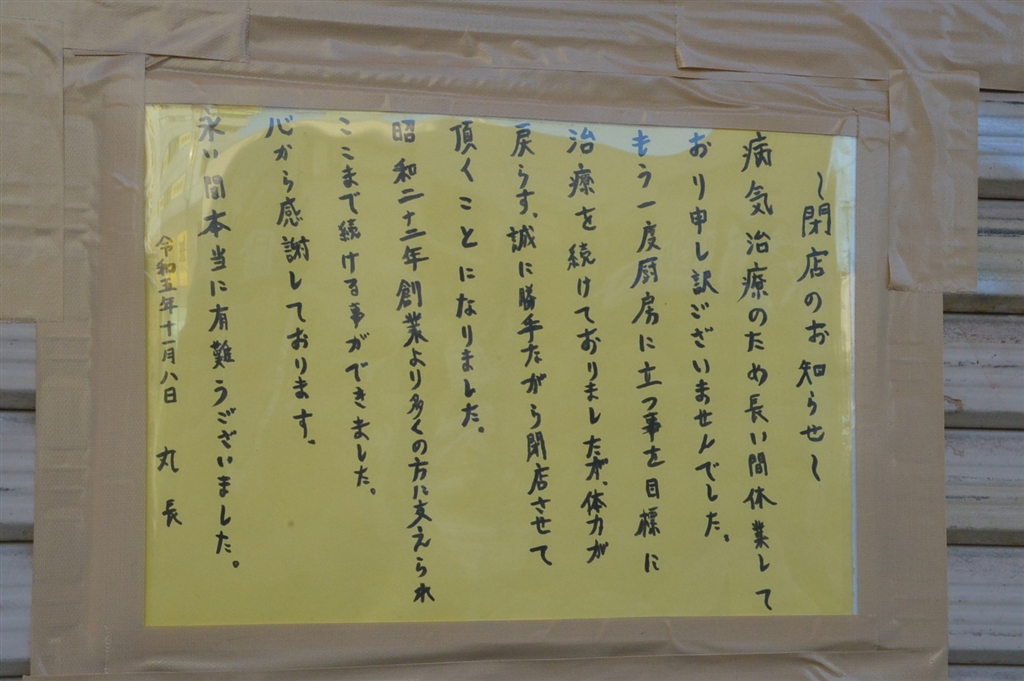 ～閉店のお知らせ～
病気治療のため長い間休業して
おり申し訳ございませんでした。
もう一度厨房に立つ事を目標に
治療を続けておりましたが、体力が
戻らず、誠に勝手ながら閉店させて
頂くことになりました。
昭和二十二年創業より多くの方に支えられ
ここまで続ける事ができました。
心から感謝しております。
永い間本当に有難うございました。
令和五年十一月八日　丸長